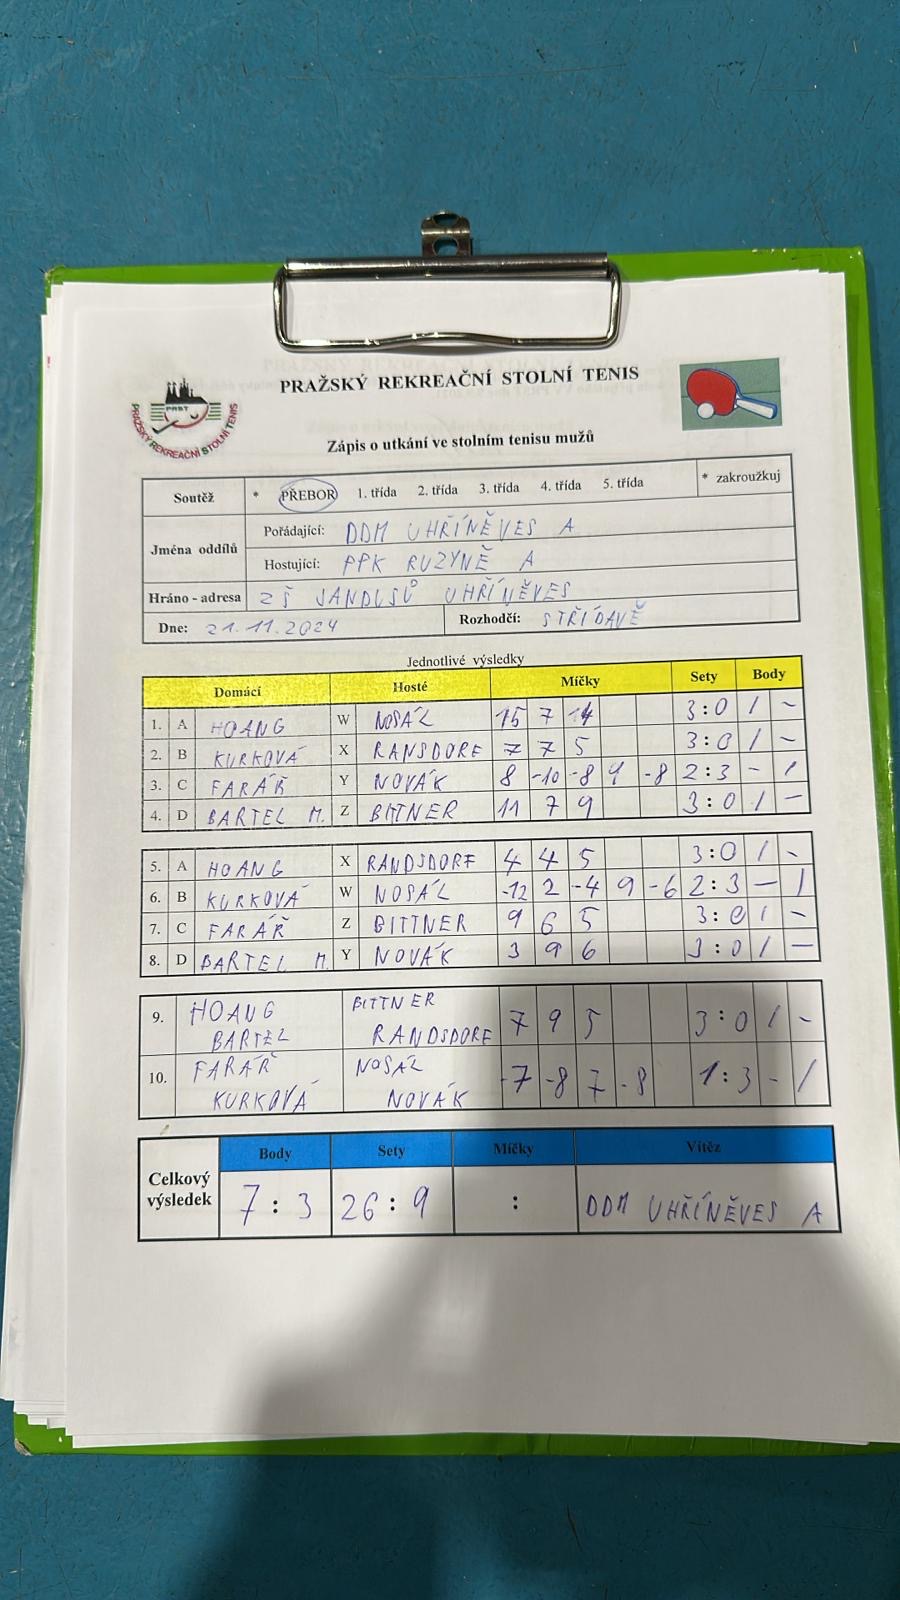 PRAŽSKÝ REKREAČNÍ STOLNÍ TENIS
PRST
PRAŽSKÝ REKREAČNÍ STOLNÍ TENIS
Zápis o utkání ve stolním tenisu mužů
Soutěž * PŘEBOR 1. třída 2. třída 3. třída 4. třída 5. třída * zakroužkuj
Jména oddílů
Pořádající: DDM UHŘÍNĚVES A
Hostující: PPK RUZYNĚ A
Hráno - adresa ZŠ JANDUSŮ UHŘÍNĚVES
Dne: 21.11.2024 Rozhodčí: STŘÍDAVĚ
Jednotlivé výsledky
Domácí Hosté Míčky Sety Body
1. A HOANG W NOSÁL 15 7 14 3:0 1 -
2. B KURKOVÁ X RANSDORF 7 7 5 3:0 1 -
3. C FARÁŘ Y NOVÁK 8 -10 -8 9 -8 2:3 - 1
4. D BARTEL M. Z BITTNER 11 7 9 3:0 1 -
5. A HOANG X RANDSDORF 4 4 5 3:0 1 -
6. B KURKOVÁ W NOSÁL -12 2 -4 9 -6 2:3 - 1
7. C FARÁŘ Z BITTNER 9 6 5 3:0 1 -
8. D BARTEL M. Y NOVÁK 3 9 6 3:0 1 -
9. HOANG BITTNER 7 9 5 3:0 1 -
BARTEL RANDSDORF
10. FARÁŘ NOSÁL -7 -8 7 -8 1:3 - 1
KURKOVÁ NOVÁK
Body Sety Míčky Vítěz
Celkový výsledek 7:3 26:9 : DDM UHŘÍNĚVES A